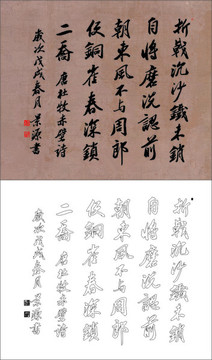 折戟沉沙鐵未銷
自將磨洗認前
朝東風不与周郎
便銅雀春深鎖
二喬 唐杜牧赤壁詩
歲次戊戌春月 景源書
折戟沉沙鐵未銷
自將磨洗認前
朝東風不与周郎
便銅雀春深鎖
二喬 唐杜牧赤壁詩
歲次戊戌春月 景源書